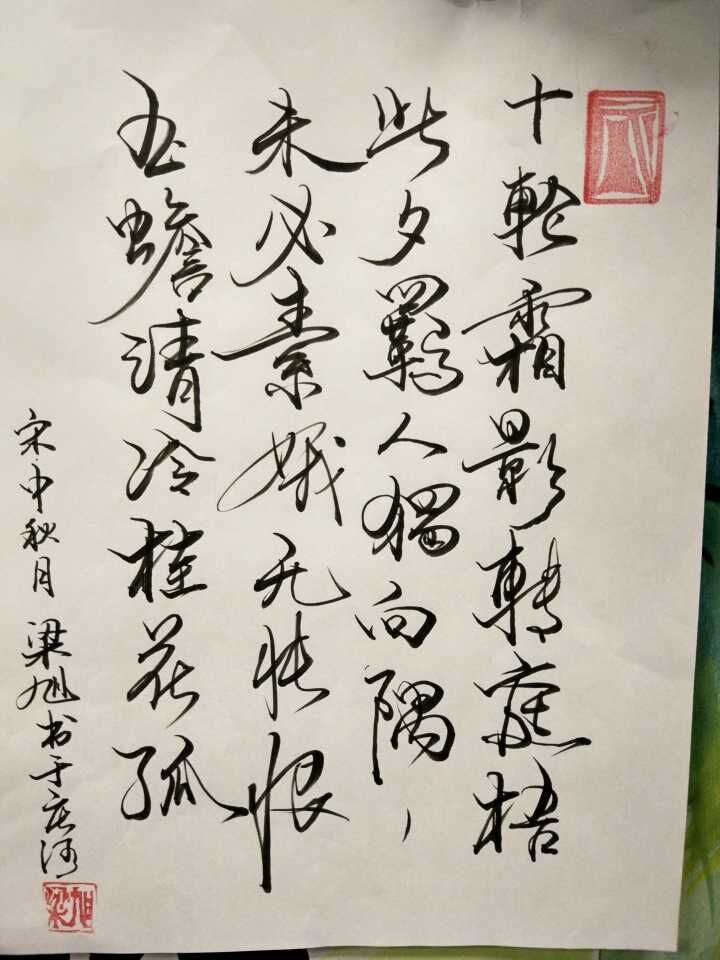 十輪霜影轉庭梧
此夕羈人獨向隅
未必素娥无悵恨
玉蟾清冷桂花孤
宋 中秋月 梁旭书于
梁旭